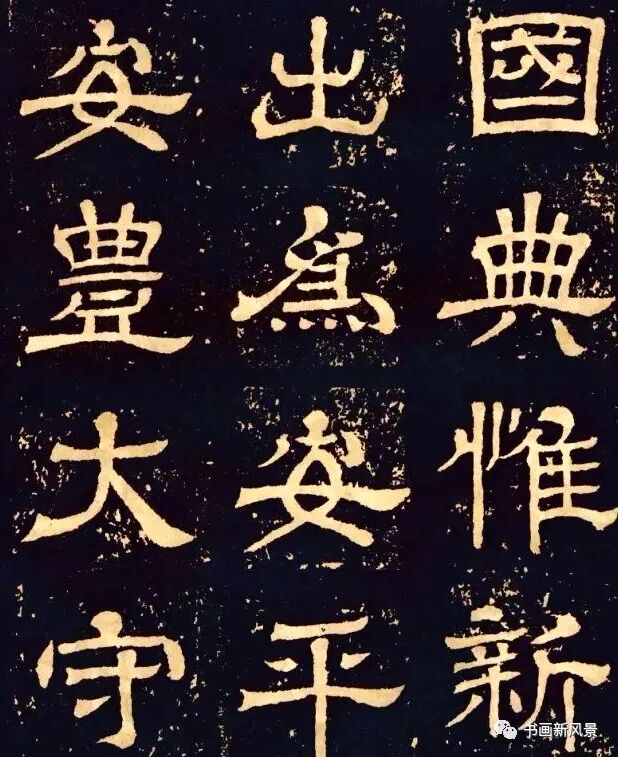 國典惟新
出為安平
安豐大守
书画新风景